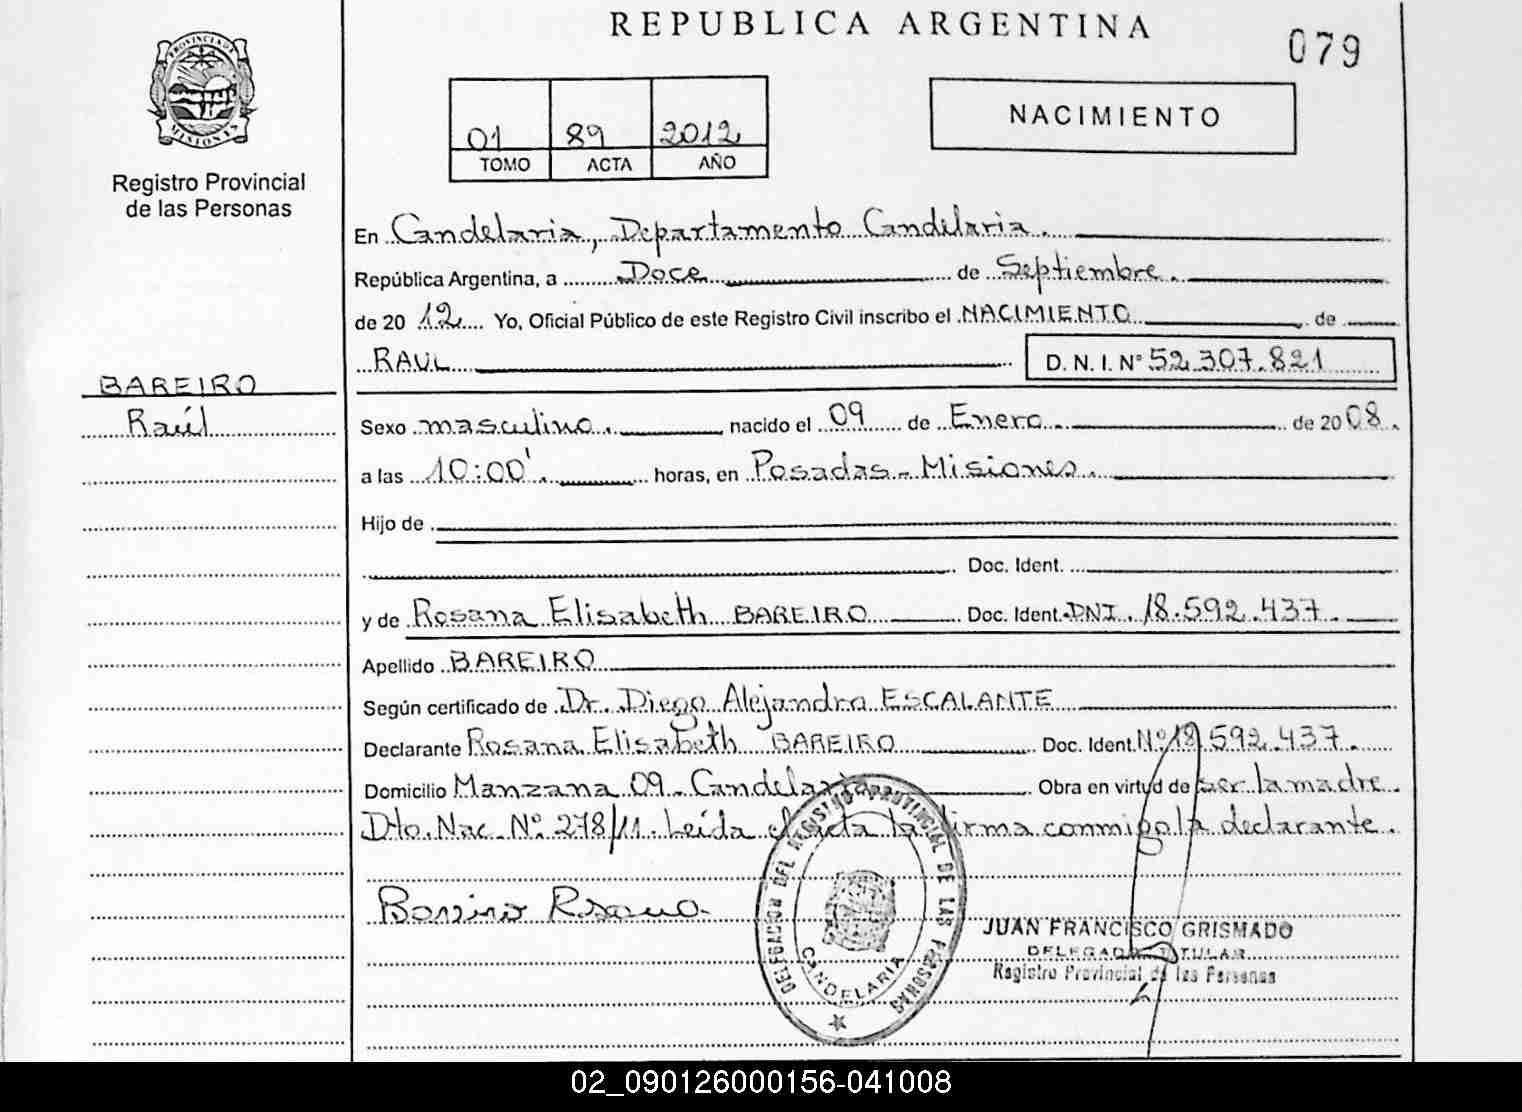 REPUBLICA ARGENTINA
079
PROVINCIA DE
MISIONES
Registro Provincial
de las Personas
01 89 2012
TOMO ACTA AÑO
NACIMIENTO
En Candelaria, Departamento Candelaria.
República Argentina, a Doce de Septiembre.
de 2012 Yo, Oficial Público de este Registro Civil inscribo el NACIMIENTO de
RAUL D. N. I. N° 52.307.821
BAREIRO
Raúl
Sexo masculino. nacido el 09 de Enero. de 2008.
a las 10:00'. horas, en Posadas - Misiones.
Hijo de
Doc. Ident.
y de Rosana Elisabeth BAREIRO Doc. Ident. DNI. 18.592.437.
Apellido BAREIRO
Según certificado de Dr. Diego Alejandro ESCALANTE
Declarante Rosana Elisabeth BAREIRO Doc. Ident. N° 18.592.437.
Domicilio Manzana 09 - Candelaria Obra en virtud de ser la madre.
Dto. Nac. N° 278/11. Leída el acta la firma conmigo la declarante.
DELEGACION DEL REGISTRO PROVINCIAL DE LAS PERSONAS
CANDELARIA
JUAN FRANCISCO GRISMADO
DELEGADO TITULAR
Registro Provincial de las Personas
02_090126000156-041008